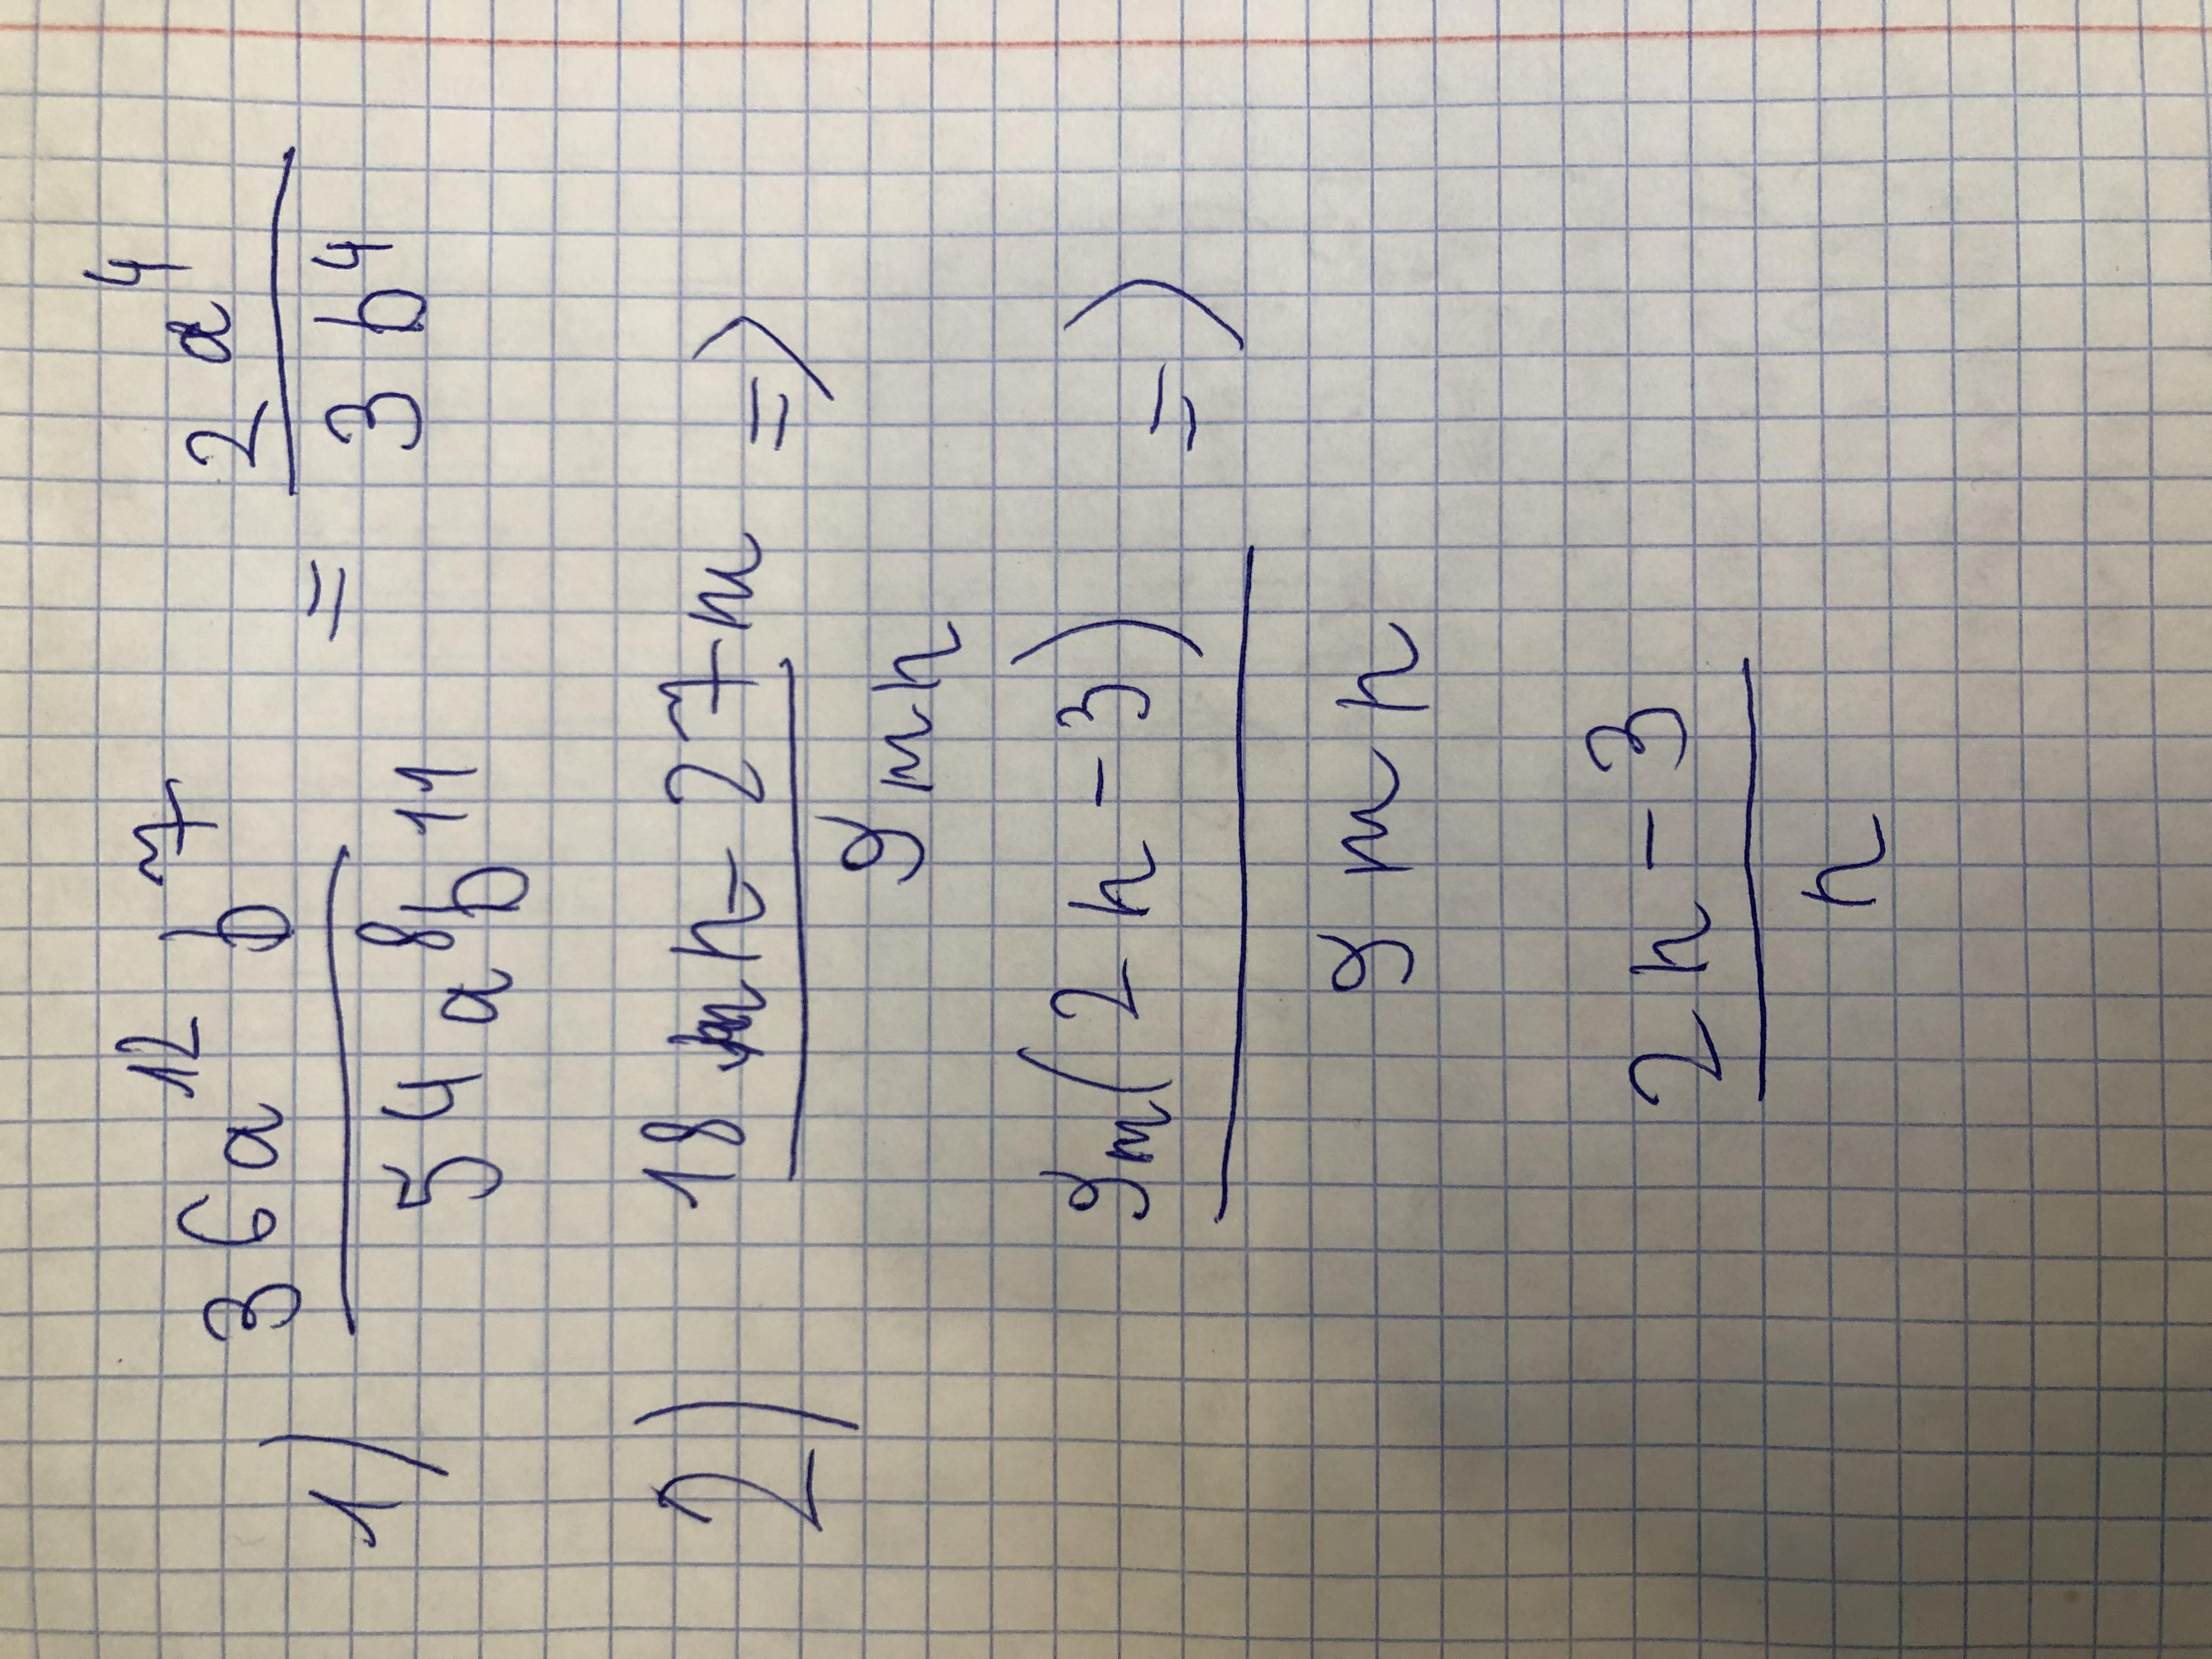 1) 36a¹²b⁷ / 54a⁸b¹¹ = 2a⁴ / 3b⁴
2) 18mn-27m / 9mn =>
9m(2n-3) / 9mn =>
2n-3 / n